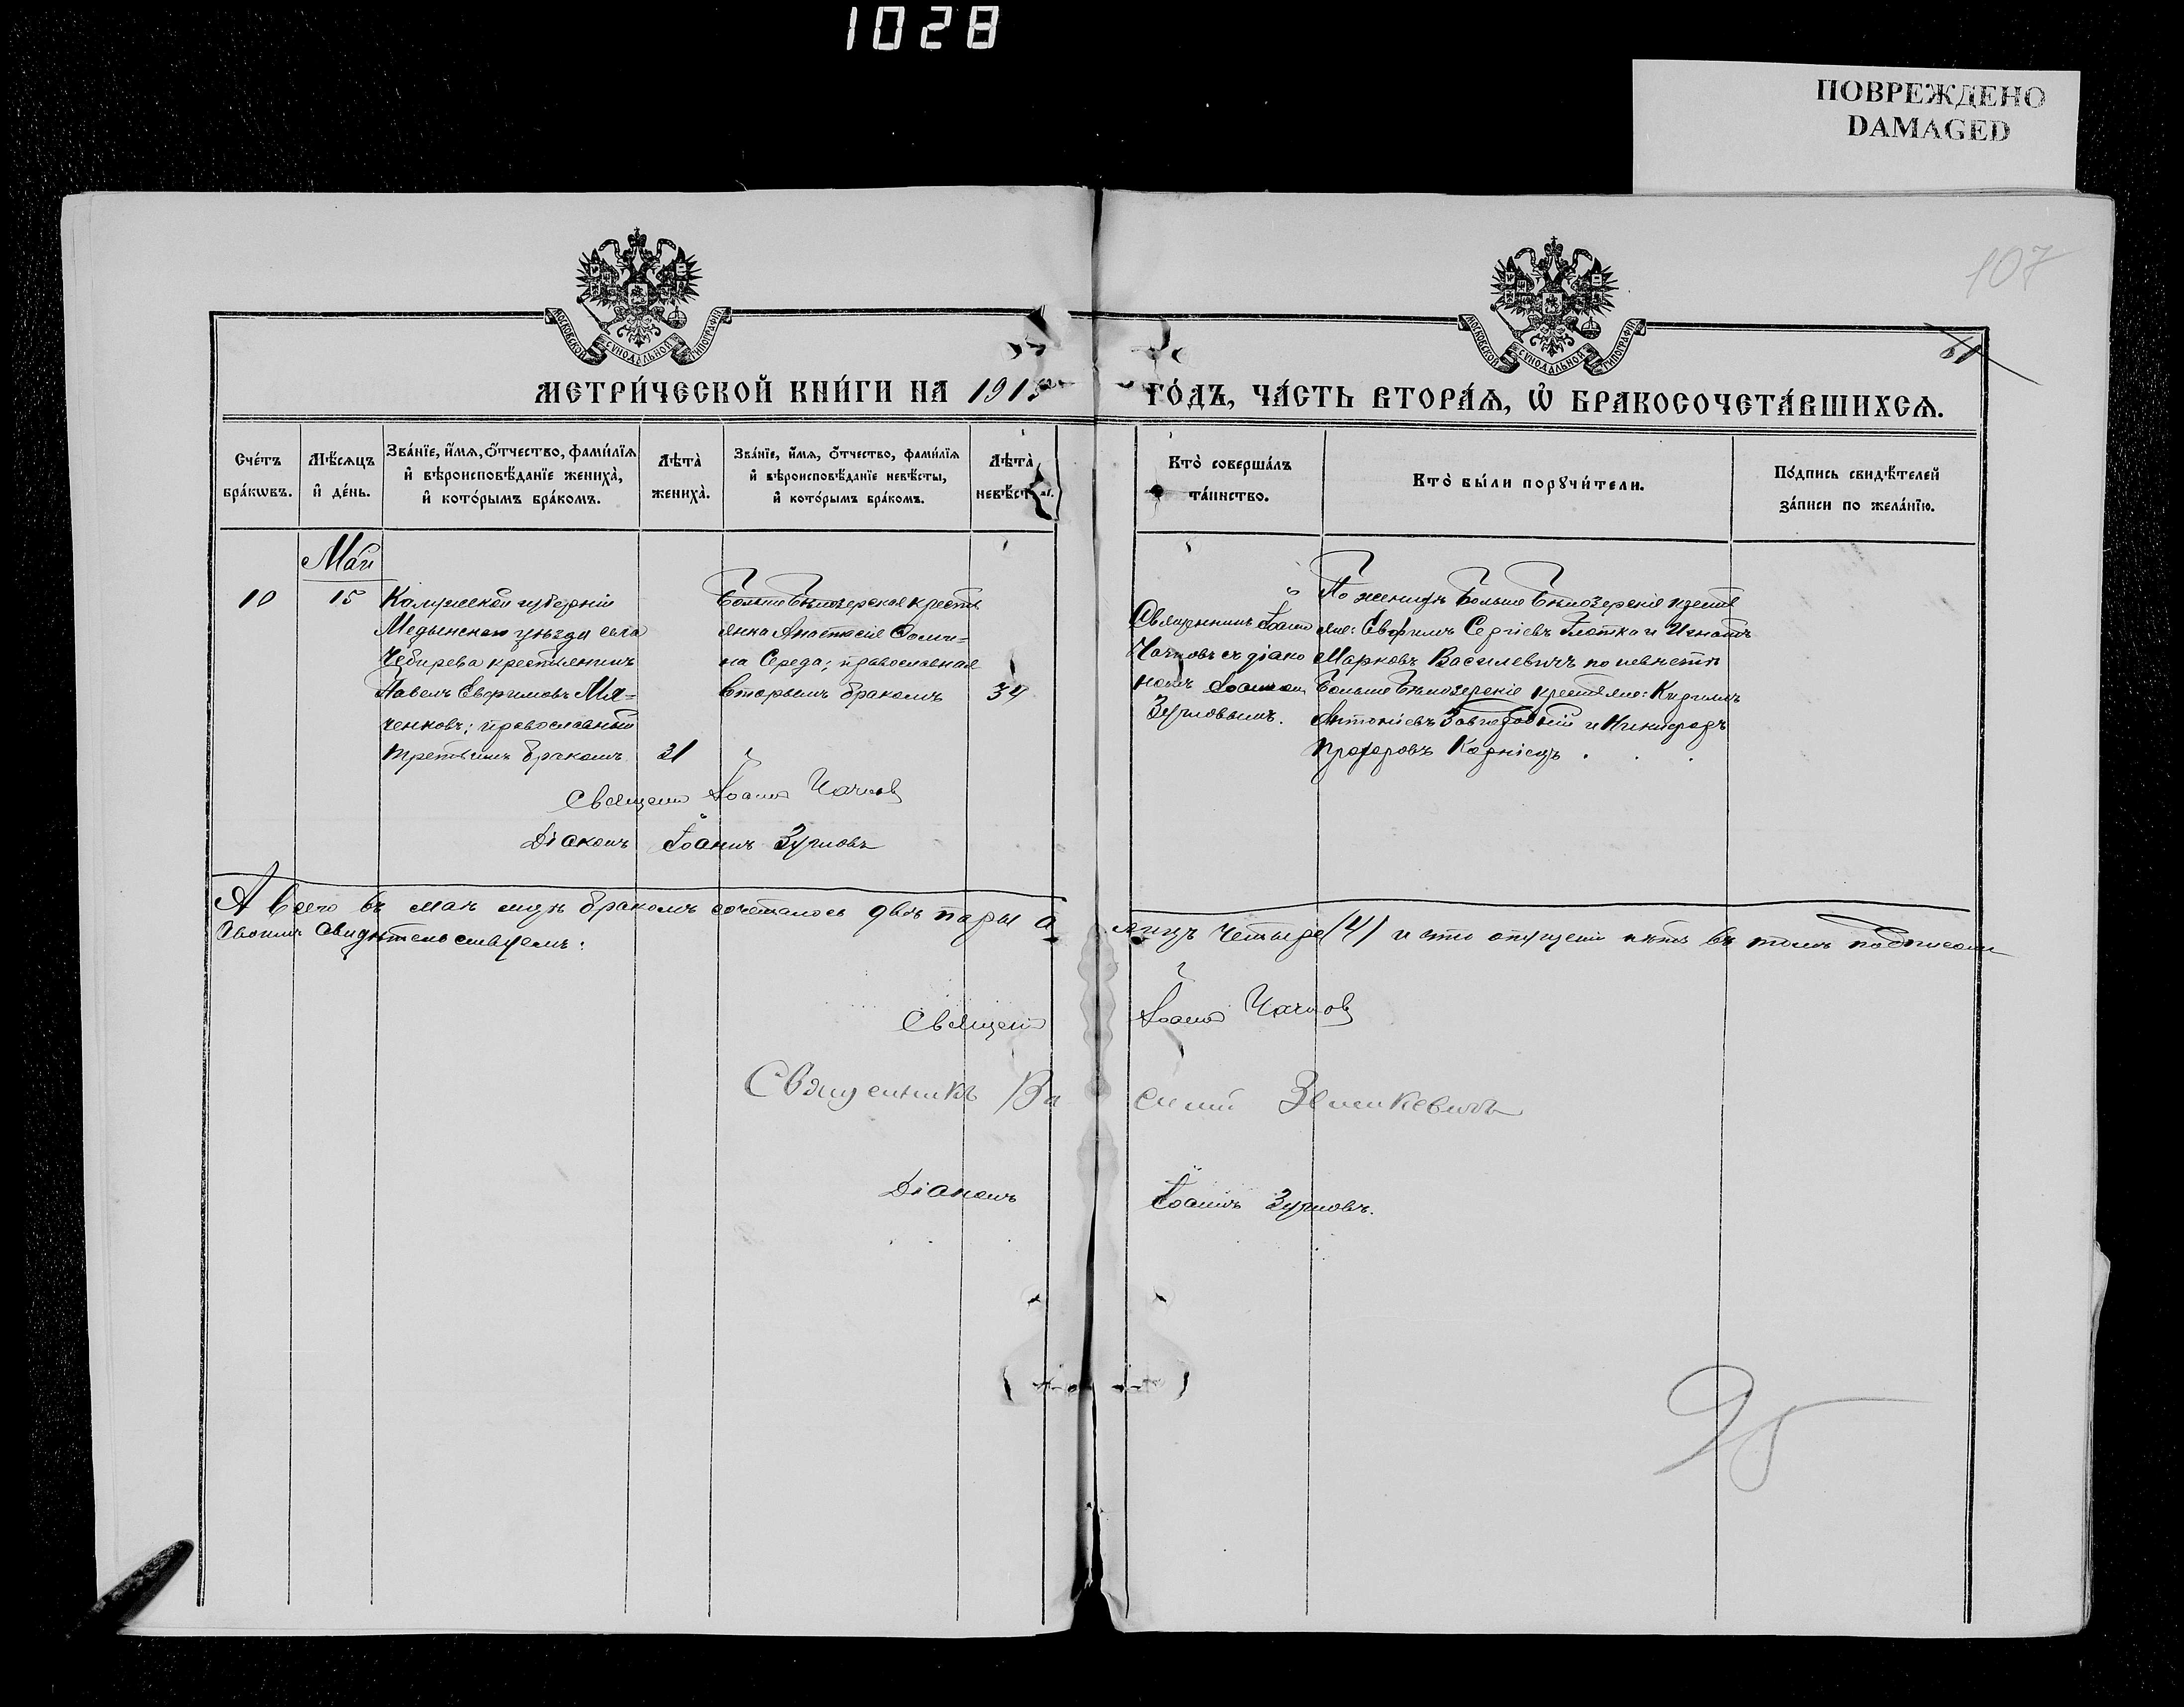 1028
ПОВРЕЖДЕНО
DAMAGED
107
61
МОСКОВСКОЙ СУНОДАЛЬНОЙ ТИПОГРАФІИ
МОСКОВСКОЙ СУНОДАЛЬНОЙ ТИПОГРАФІИ
МЕТРИ́ЧЕСКОЙ КНИ́ГИ НА 191
ГО́ДЪ, ЧА́СТЬ ВТОРА́Ѧ, Ѽ БРАКОСОЧЕТА́ВШИХСѦ.
Сче́тъ бра́кѡвъ.
Мѣ́сяцъ и҆ де́нь.
Зва́нїе, и҆́мя, ѻ҆́тчество, фами́лїя и҆ вѣроисповѣ́данїе жениха̀, и҆ кото́рымъ бра́комъ.
Лѣта̀ жениха̀.
Зва́нїе, и҆́мя, ѻ҆́тчество, фами́лїя и҆ вѣроисповѣ́данїе невѣ́сты, и҆ кото́рымъ бра́комъ.
Лѣта̀ невѣ́сты.
Кто̀ соверша́лъ та́инство.
Кто̀ бы́ли порꙋчи́тели.
По́дпись свидѣ́телей за́писи по жела́нїю.
Май
10
15
Калужской губерніи
Медынскаго уѣзда села
Чебирева крестьянинъ
Павелъ Евфимовъ Мя=
ченковъ; православный
третьимъ бракомъ
31
Больше Бѣлозерская кресть
янка Анастасія Ѳоми=
на Середа; православная
вторымъ бракомъ
34
Священникъ Іоаннъ
Чачковъ съ діако
номъ Іоанномъ
Зуиловымъ.
По женихѣ Больше Бѣлозерскіе кресть
яне: Евфимъ Сергіевъ Глотка и Игнатъ
Марковъ Василевичъ по невѣстѣ
Больше Бѣлозерскіе крестьяне: Кириллъ
Антоніевъ Завгородній и Никифоръ
Корніецъ
Священ Іоаннъ Чачков
Діаконъ Іоаннъ Зуиловъ
А всего въ маѣ мцѣ бракомъ сочеталось двѣ пары а лицъ четыре (4) и что опущеній нѣтъ въ томъ подписомъ
своимъ свидѣтельствуемъ:
Священ Іоаннъ Чачков
Священникъ Василій Зенькевичъ
Діаконъ Іоаннъ Зуиловъ.